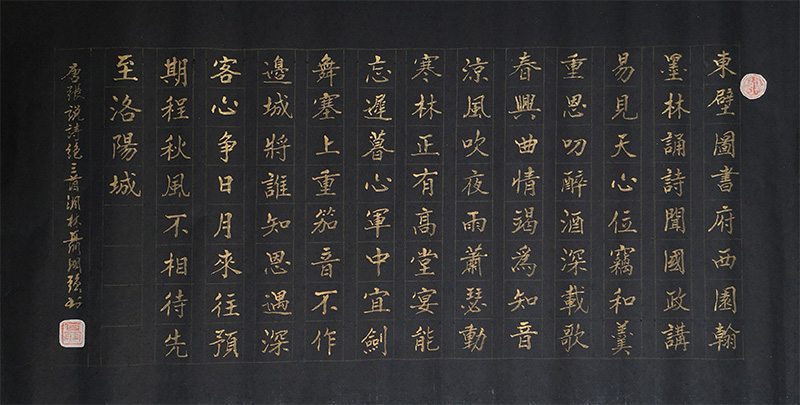 東壁圖書府西園翰
墨林誦詩聞國政講
易見天心位竊和羹
重恩叨醉酒深載歌
春興曲情竭為知音
涼風吹夜雨蕭瑟動
寒林正有高堂宴能
忘遲暮心軍中宜劍
舞塞上重笳音不作
邊城將誰知恩遇深
客心爭日月來往預
期程秋風不相待先
至洛陽城
唐張說詩絕三首